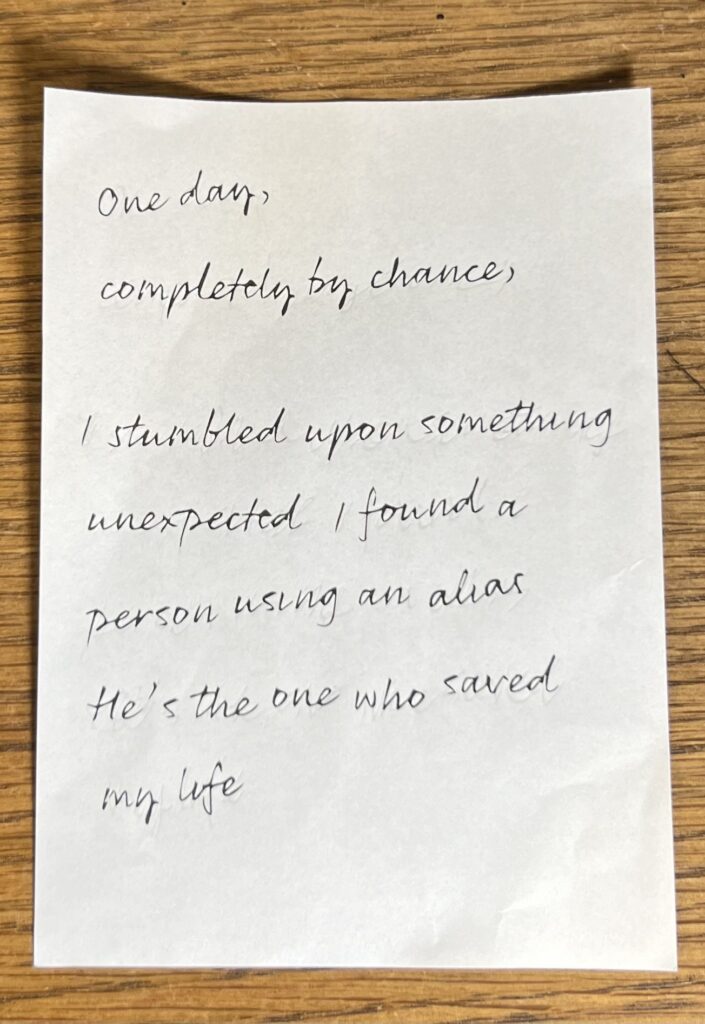 One day,
completely by chance,
I stumbled upon something
unexpected I found a
person using an alias
He's the one who saved
my life